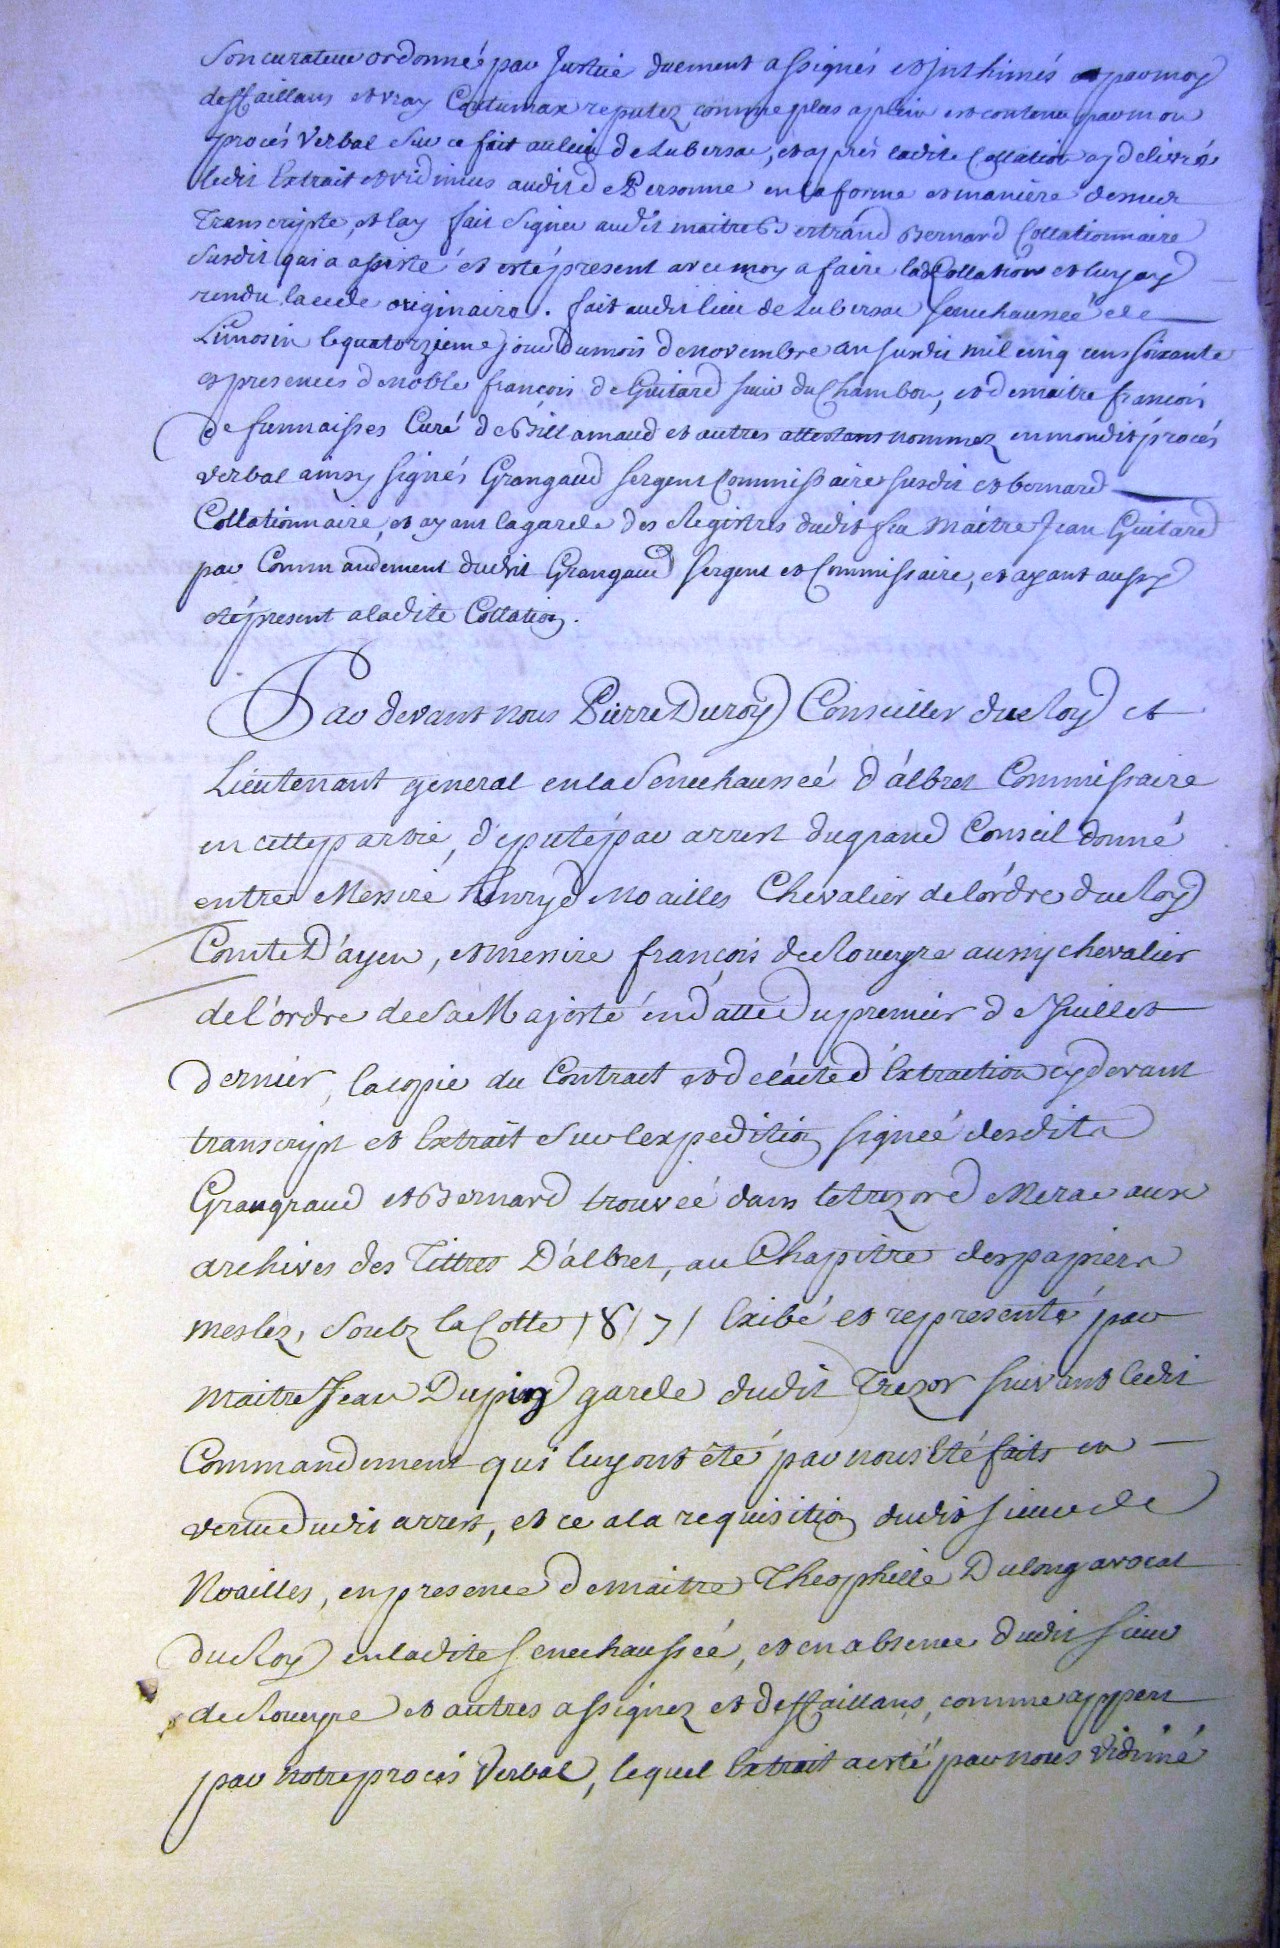 Son curateur ordonné par Justice duement assignés et inthimés et par moy
deffaillans et vray Contumax reputez comme plus a plein est contenu par mon
procés Verbal sur ce fait au lieu de Lubersac, et apprés ladite Collation ay delivré
ledit Extrait et vidimus audit de Personne en la forme et maniere dessus
Transcripte, et l'ay fait signer audit maitre Bertrand Bernard Collationnaire
susdit qui a assisté et esté present avec moy a faire lad Collation et luy ay
rendu la cede originaire. fait audit lieu de Lubersac senechaussée de
Limosin le quatorzieme jour du mois de novembre an susdit mil cinq cens soixante
es presences de noble françois de Guitard sieur du Chambon, et de maitre françois
de Curé de et autres attestans nommez en mondit procés
verbal ainsy signés Grangaud sergent Commissaire susdit et bernard
Collationnaire, et ayant la garde des Registres dudit feu Maitre Jean Guitard
par Commandement dudit Grangaud sergent et Commissaire, et ayant aussy
eté present a ladite Collation.
Par devant nous Pierre Duroy Conseiller du Roy et
Lieutenant general en la Senechaussée d'albret Commissaire
en cette partie, deputé par arrest du grand Conseil donné
entre Messire henry de Noailles Chevalier de l'ordre du Roy
Comte D'ayen, et messire françois de Roueyre aussy chevalier
de l'ordre de Sa Majesté en datte du premier de Juillet
dernier, la copie du Contract et de l'acte d'Extraction cy devant
transcript et Extrait sur l'expedition signée desdits
Graugraud et Bernard trouvée dans le trezor de Nerac aux
archives des Tittres D'albret, au Chapitre des papiers
meslez, soubz la Cotte 1871 Exibé et representé par
maitre Jean Dupin garde dudit Trezor suivant ledit
Commandement qui luy ont été par nous Eté faits en
vertu dudit arrest, et ce a la requisition dudit sieur de
Noailles, en presence de maitre Theophille Dulong avocat
du Roy en ladite senechaussée, et en absence dudit sieur
de Roueyre et autres assignez et deffaillans, comme appert
par notre procés Verbal, lequel Extrait a esté par nous vidimé